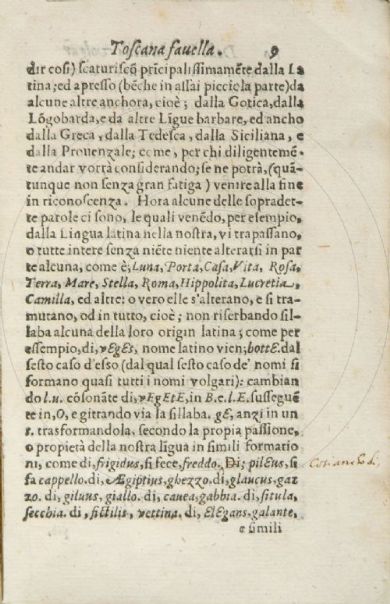 Toscana favella. 9
dir cosi) scaturiscō prīcipalissimamēte dalla La
tina; ed apresso (bēche in assai picciola parte) da
alcune altre anchora, cioè; dalla Gotica, dalla
Lōgobarda, e da altre Līgue barbare, ed ancho
dalla Greca, dalla Tedesca, dalla Siciliana, e
dalla Prouenzale; come, per chi diligentemē-
te andar vorrà considerando; se ne potrà, (quā-
tunque non senza gran fatiga) venire alla fine
in riconoscenza. Hora alcune delle sopradet-
te parole ci sono, le quali venēdo, per esempio,
dalla Lingua latina nella nostra, vi trapassano,
o tutte intere senza niēte niente alterarsi in par
te alcuna, come è, Luna, Porta, Casa, Vita, Rosa,
Terra, Mare, Stella, Roma, Hippolita, Lucretia,
Camilla, ed altre: o vero elle s'alterano, e si tra-
mutano, od in tutto, cioè; non riserbando sil-
laba alcuna della loro origin latina; come per
essempio, di, vEgEs, nome latino vien; bottE. dal
sesto caso d'esso (dal qual sesto caso de' nomi si
formano quasi tutti i nomi volgari): cambian
do l. u. cōsonāte di, vEgEtE, in B. e l. E. susseguē
te in, O, e gittando via la sillaba. gE, anzi in un
t. trasformandola, secondo la propia passione,
o propietà della nostra līgua in simili formatio
ni, come di, frigidus, si fece, freddo. Di; pilEus, si
fa cappello. di, Ægiptius, ghezzo. di, glaucus, gaz
zo. di, giluus, giallo. di, cauea, gabbia. di, situla,
secchia. di, fictilis, vettina. di, ElEgans, galante,
e simili